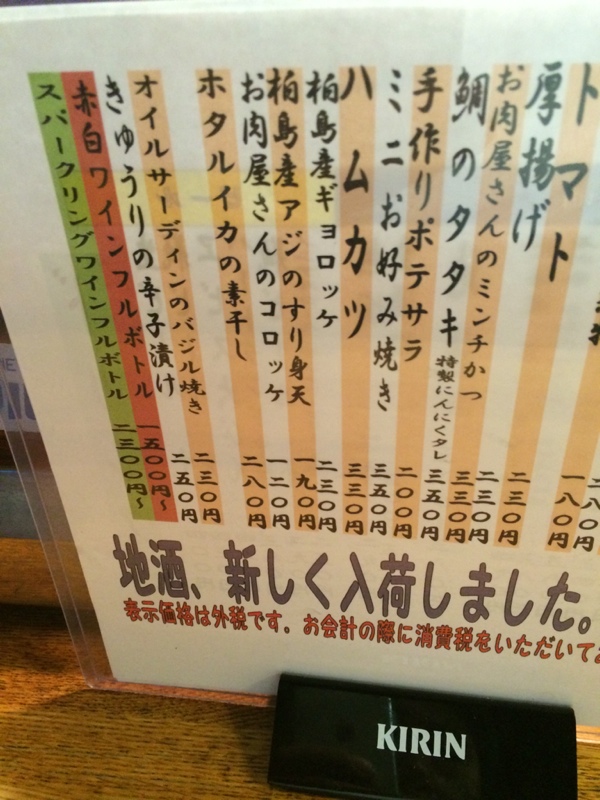 二八〇円
一八〇円
トマト 二三〇円
厚揚げ 二三〇円
お肉屋さんのミンチかつ 三三〇円
鯛のタタキ 特製にんにくタレ 三五〇円
手作りポテサラ 二〇〇円
ミニお好み焼き 三五〇円
ハムカツ 三三〇円
柏島産ギョロッケ 二三〇円
柏島産アジのすり身天 一九〇円
お肉屋さんのコロッケ 一二〇円
ホタルイカの素干し 二八〇円
オイルサーディンのバジル焼き 二三〇円
きゅうりの辛子漬け 二五〇円
赤白ワインフルボトル 一五〇〇円〜
スパークリングワインフルボトル 二三〇〇円〜
地酒、新しく入荷しました。
表示価格は外税です。お会計の際に消費税をいただいて
KIRIN